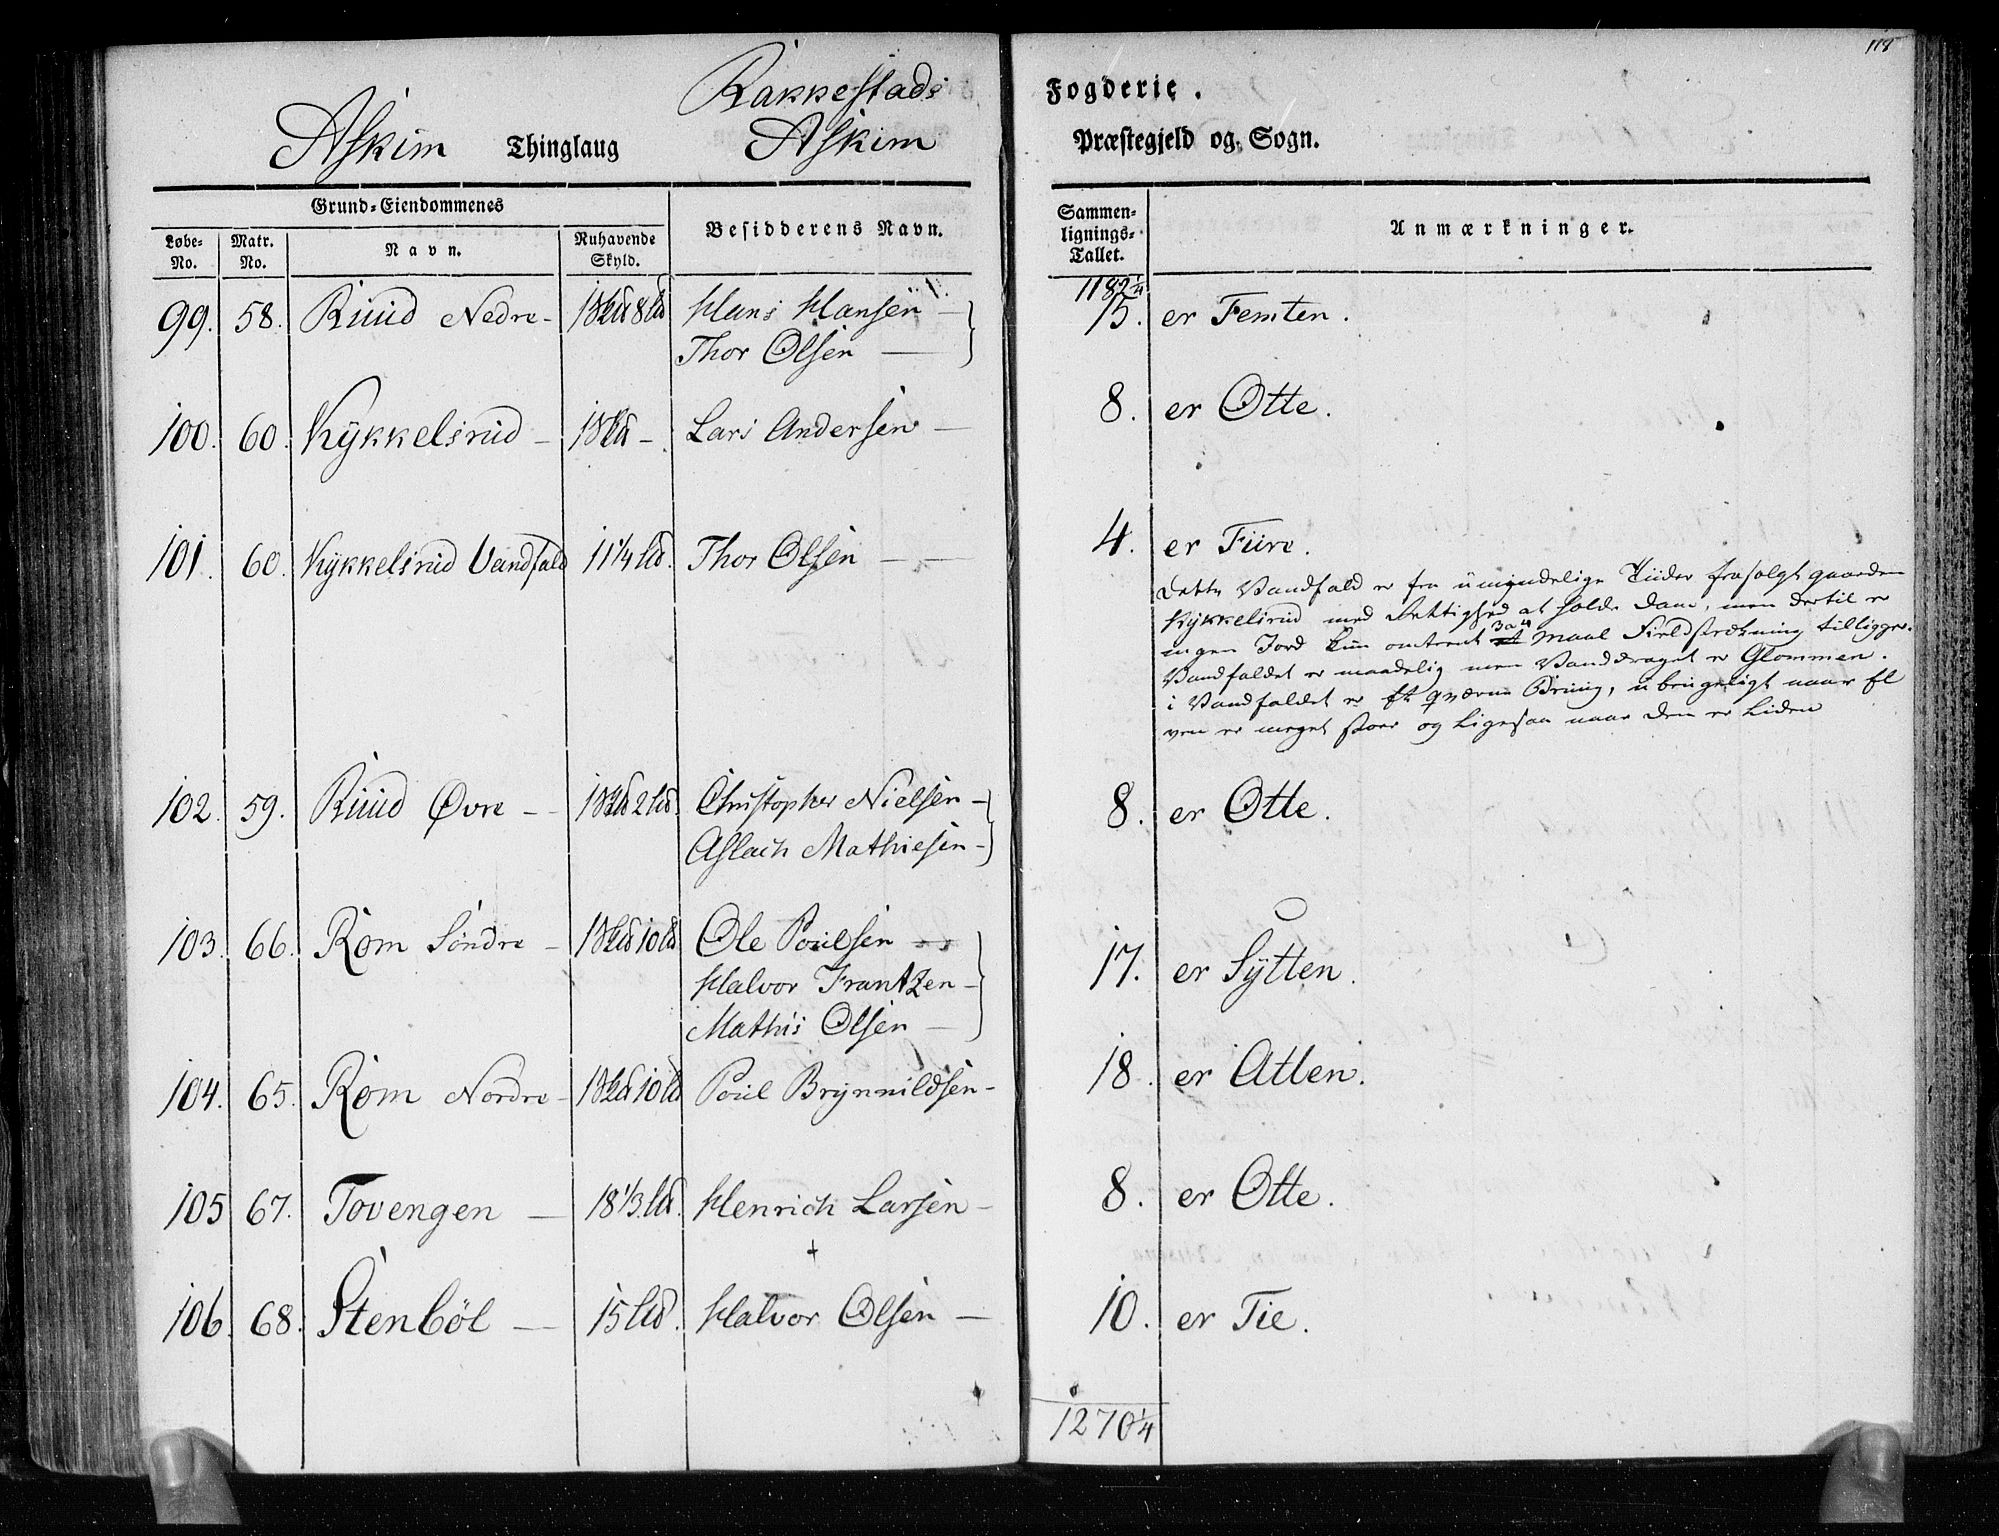 118
Rakkestads Fogderie.
Askim Thinglaug Askim Præstegjeld og Sogn.
Grund-Eiendommenes
Besidderens Navn.
Sammen-
lignings-
Tallet.
Anmærkninger.
Løbe-
No.
Matr.
No.
Navn.
Nuhavende
Skyld.
1182 1/4
99. 58. Ruud Nedre - 1 Skd 8 Ld Hans Hansen — 15. er Femten.
Thor Olsen —
100. 60. Kykkelsrud - 1 Skd - Lars Andersen — 8. er Otte.
101. 60. Kykkelsrud Vandfald 11 1/4 Ld. Thor Olsen — — 4. er Fiire.
Dette Vandfald er fra umindelige Tiider frasolgt gaarden
Kykkelsrud med Rettighed at holde Dam, men dertil er
ingen Jord kun omtrent 3 a 4 Maal Fieldstrækning tilligger.
Vandfaldet er maadelig men Vanddraget er Glommen.
i Vandfaldet er Et qværne Brug, ubrugeligt naar El
ven er meget stoer og ligesaa naar den er liden
102. 59. Ruud Øvre - - 1 Skd 2 Ld. Christopher Nielsen - 8. er Otte.
Aslach Mathiesen -
103. 66. Rom Søndre - 1 Skd 10 Ld Ole Poulsen — 17. er Sÿtten.
Halvor Frantzen -
Mathis Olsen —
104. 65. Rom Nordre - 1 Skd 10 Ld Poul Brynnildsen - 18. er Atten.
105 67. Tovengen — 18 1/3 Ld. Henrich Larsen - 8. er Otte.
+
106. 68. Stenbøl — 15 Ld. Halvor Olsen — 10. er Tie.
1270 1/4